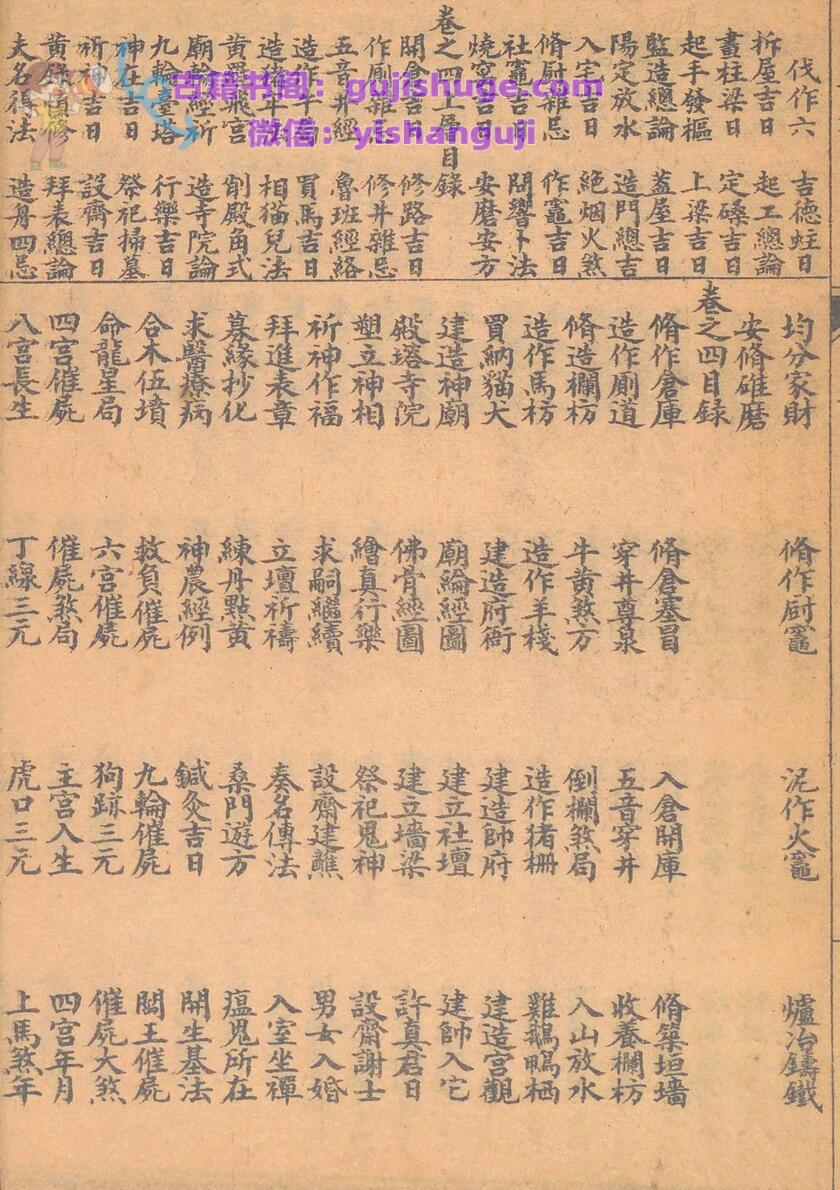 伐作六　吉德蛀日
拆屋吉日　起工總論
畫柱梁日　定磉吉日
起手發樞　上梁吉日
監造總論　蓋屋吉日
陽定放水　造門總吉
入宅吉日　絶烟火煞
脩厨雜忌　作竈吉日
社竈吉日　問響卜法
燒窑吉日　安磨安方
卷之四上層目錄
開倉吉日　修路吉日
作厠雜忌　修井雜忌
五音井經　魯班經絡
造作羊　買馬吉日
造　法　相猫兒法
黄羅飛宫　創殿角式
廟　經祈　造寺院論
九輪臺塔　行樂吉日
神在吉日　祭祀掃墓
祈神吉日　設齋吉日
黄錄　拜表總論
夫名得法　造舟四忌
均分家財　脩作厨竈　泥作火竈　爐冶鑄鐵
安脩碓磨
卷之四目錄
脩作倉庫　脩倉塞冒　入倉開庫　脩築垣墻
造作厠道　穿井尊泉　五音穿井　收養欄枋
脩造欄枋　牛黄煞方　倒欄煞局　入山放水
造作馬枋　造作羊棧　造作猪栅　雞鵝鴨栖
買納猫犬　建造府衙　建造帥府　建造宫觀
建造神廟　廟綸經圖　建立社壇　建帥入它
殿塔寺院　佛骨經圖　建立墻梁　許真君日
塑立神相　繪真行樂　祭祀鬼神　設齋謝士
祈神作福　求嗣繼續　設齋建醮　男女入婚
拜進表章　立壇祈禱　奏名傳法　入室坐禪
募緣抄化　練丹點黄　桑門遊方　瘟鬼所在
求醫療病　神農經例　鍼灸吉日　開生基法
合木伍墳　救負催屍　九輪催屍　閻王催屍
命龍星局　六宫催屍　狗跡三元　催屍大煞
四宫催屍　催屍煞局　主宫入生　四宫年月
八宫長生　丁線三元　虎口三元　上馬煞年
古籍书阁：gujishuge.com
微信：yishanguji